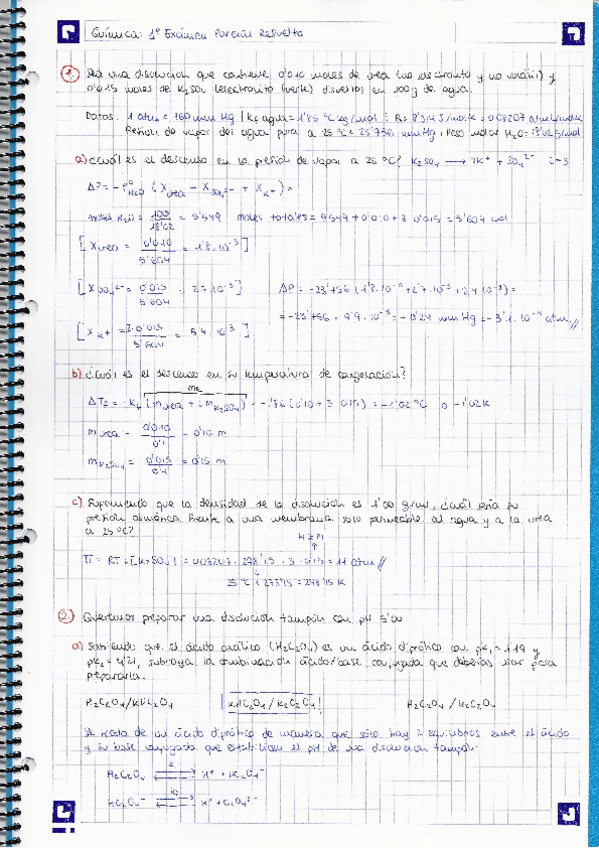 Química: 1º Exámen Parcial Resuelto
1. Sea una disolución que contiene 0'010 moles de urea (no electrolito y no volátil) y
0'015 moles de K2SO4 (electrolito fuerte) disueltos en 100g de agua.
Datos: 1 atm = 760 mm Hg | Kf agua = 1'86 ºC kg/mol | R = 8'314 J/mol·K = 0'08207 atm·L/mol·K
Presión de vapor del agua pura a 25ºC = 23'756 mmHg; Peso molar H2O = 18'02 g/mol
a) ¿Cuál es el descenso en la presión de vapor a 25ºC? K2SO4 → 2K+ + SO4 2- i=3
ΔP = -PºH2O (Xurea - XSO4 2- + XK+) =
moles H2O = 100/18'02 = 5'549 moles totales = 5'549 + 0'010 + 3·0'015 = 5'604 mol
[Xurea = 0'010/5'604 = 1'8·10^-3]
[XSO4 2- = 0'015/5'604 = 2'7·10^-3] ΔP = -23'756 (1'8·10^-3 + 2'7·10^-3 + 5'4·10^-3) =
= -23'756 · 9'9·10^-3 = -0'24 mm Hg = -3'1·10^-4 atm //
[XK+ = 2·0'015/5'604 = 5'4·10^-3]
b) ¿Cuál es el descenso en su temperatura de congelación?
ΔTf = -Kf (murea + i mK2SO4) = -1'86 (0'10 + 3·0'15) = -1'02 ºC o -1'02 K
murea = 0'010/0'1 = 0'10 m
mK2SO4 = 0'015/0'1 = 0'15 m
c) Suponiendo que la densidad de la disolución es 1'00 g/ml, ¿cuál sería su
presión osmótica frente a una membrana solo permeable al agua y a la urea
a 25ºC?
M ≅ m
π = RT·i[K2SO4] = 0'08207 · 298'15 · 3 · 0'15 = 11 atm //
25ºC + 273'15 = 298'15 K
2. Queremos preparar una disolución tampón con pH 5'00
a) Sabiendo que el ácido oxálico (H2C2O4) es un ácido diprótico con pK1 = 1'19 y
pK2 = 4'21, subraya la combinación ácido/base conjugada que deberías usar para
prepararla.
H2C2O4/KHC2O4 KHC2O4/K2C2O4 H2C2O4/K2C2O4
Se trata de un ácido diprótico de manera que sólo hay 2 equilibrios entre el ácido
y su base conjugada que establecen el pH de una disolución tampón:
H2C2O4 ⇌ H+ + HC2O4-
HC2O4- ⇌ H+ + C2O4 2-